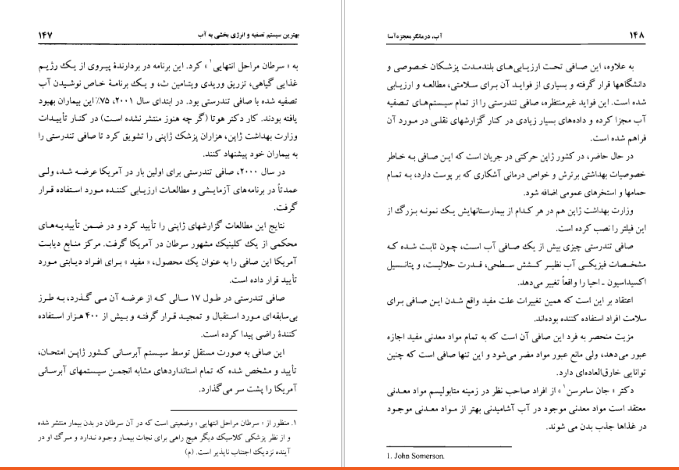 ۱۴۷ بهترین سیستم تصفیه و انرژی بخشی به آب
به « سرطان مراحل انتهایی ۱» کرد. این برنامه در بردارندهٔ پیروی از یک رژیم
غذایی گیاهی، تزریق وریدی ویتامین ث، و یک برنامهٔ خاص نوشیدن آب
تصفیه شده با صافی تندرستی بود. در ابتدای سال ۲۰۰۱، ۷۵٪ این بیماران بهبود
یافته بودند. کار دکتر هوتا (گر چه هنوز منتشر نشده است) در کنار تأییدات
وزارت بهداشت ژاپن، هزاران پزشک ژاپنی را تشویق کرد تا صافی تندرستی را
به بیماران خود پیشنهاد کنند.
در سال ۲۰۰۰، صافی تندرستی برای اولین بار در آمریکا عرضه شد، ولی
عمدتاً در برنامه‌های آزمایشی و مطالعات ارزیابی کننده مورد استفاده قرار
گرفت.
نتایج این مطالعات گزارشهای ژاپنی را تأیید کرد و در ضمن تأییدیه‌های
محکمی از یک کلینیک مشهور سرطان در آمریکا گرفت. مرکز منابع دیابت
آمریکا این صافی را به عنوان یک محصول، « مفید » برای افراد دیابتی مورد
تأیید قرار داده است.
صافی تندرستی در طول ۱۷ سالی که از عرضه آن می گذرد، به طرز
بی‌سابقه‌ای مورد استقبال و تمجید قرار گرفته و بیش از ۴۰۰ هزار استفاده
کنندهٔ راضی پیدا کرده است.
این صافی به صورت مستقل توسط سیستم آبرسانی کشور ژاپن امتحان،
تأیید و مشخص شده که تمام استانداردهای مشابه انجمن سیستمهای آبرسانی
آمریکا را پشت سر می‌گذارد.
۱. منظور از « سرطان مراحل انتهایی » وضعیتی است که در آن سرطان در بدن بیمار منتشر شده
و از نظر پزشکی کلاسیک دیگر هیچ راهی برای نجات بیمار وجود ندارد و مرگ او در
آینده نزدیک اجتناب ناپذیر است. (م)
۱۴۸ آب، درمانگر معجزه‌آسا
به علاوه، این صافی تحت ارزیابی‌های بلندمدت پزشکان خصوصی و
دانشگاهها قرار گرفته و بسیاری از فواید آن برای سلامتی، مطالعه و ارزیابی
شده است. این فواید غیرمنتظره، صافی تندرستی را از تمام سیستم‌های تصفیه
آب مجزا کرده و داده‌های بسیار زیادی در کنار گزارشهای نقلی در مورد آن
فراهم شده است.
در حال حاضر، در کشور ژاپن حرکتی در جریان است که این صافی به خاطر
خصوصیات بهداشتی برترش و خواص درمانی آشکاری که بر پوست دارد، به تمام
حمامها و استخرهای عمومی اضافه شود.
وزارت بهداشت ژاپن هم در هر کدام از بیمارستانهایش یک نمونه بزرگ از
این فیلتر را نصب کرده است.
صافی تندرستی چیزی بیش از یک صافی آب است، چون ثابت شده که
مشخصات فیزیکی آب نظیر کشش سطحی، قدرت حلالیت، و پتانسیل
اکسیداسیون ـ احیا را واقعاً تغییر می‌دهد.
اعتقاد بر این است که همین تغییرات علت مفید واقع شدن این صافی برای
سلامت افراد استفاده کننده بوده‌اند.
مزیت منحصر به فرد این صافی آن است که به تمام مواد معدنی مفید اجازه
عبور می‌دهد، ولی مانع عبور مواد مضر می‌شود و این تنها صافی است که چنین
توانایی خارق‌العاده‌ای دارد.
دکتر « جان سامرسن ۱» از افراد صاحب نظر در زمینه متابولیسم مواد معدنی
معتقد است مواد معدنی موجود در آب آشامیدنی بهتر از مواد معدنی موجود
در غذاها جذب بدن می شوند.
1. John Somerson.